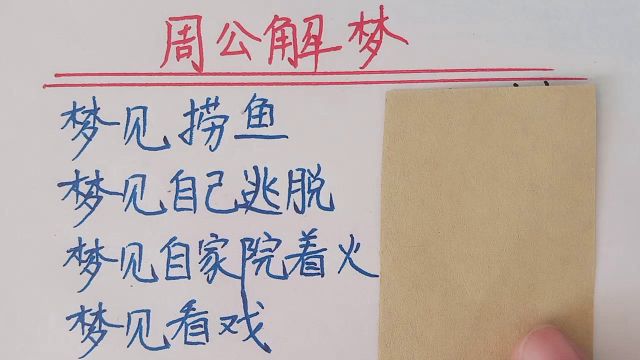 周公解梦
梦见捞鱼
梦见自己逃脱
梦见自家院着火
梦见看戏